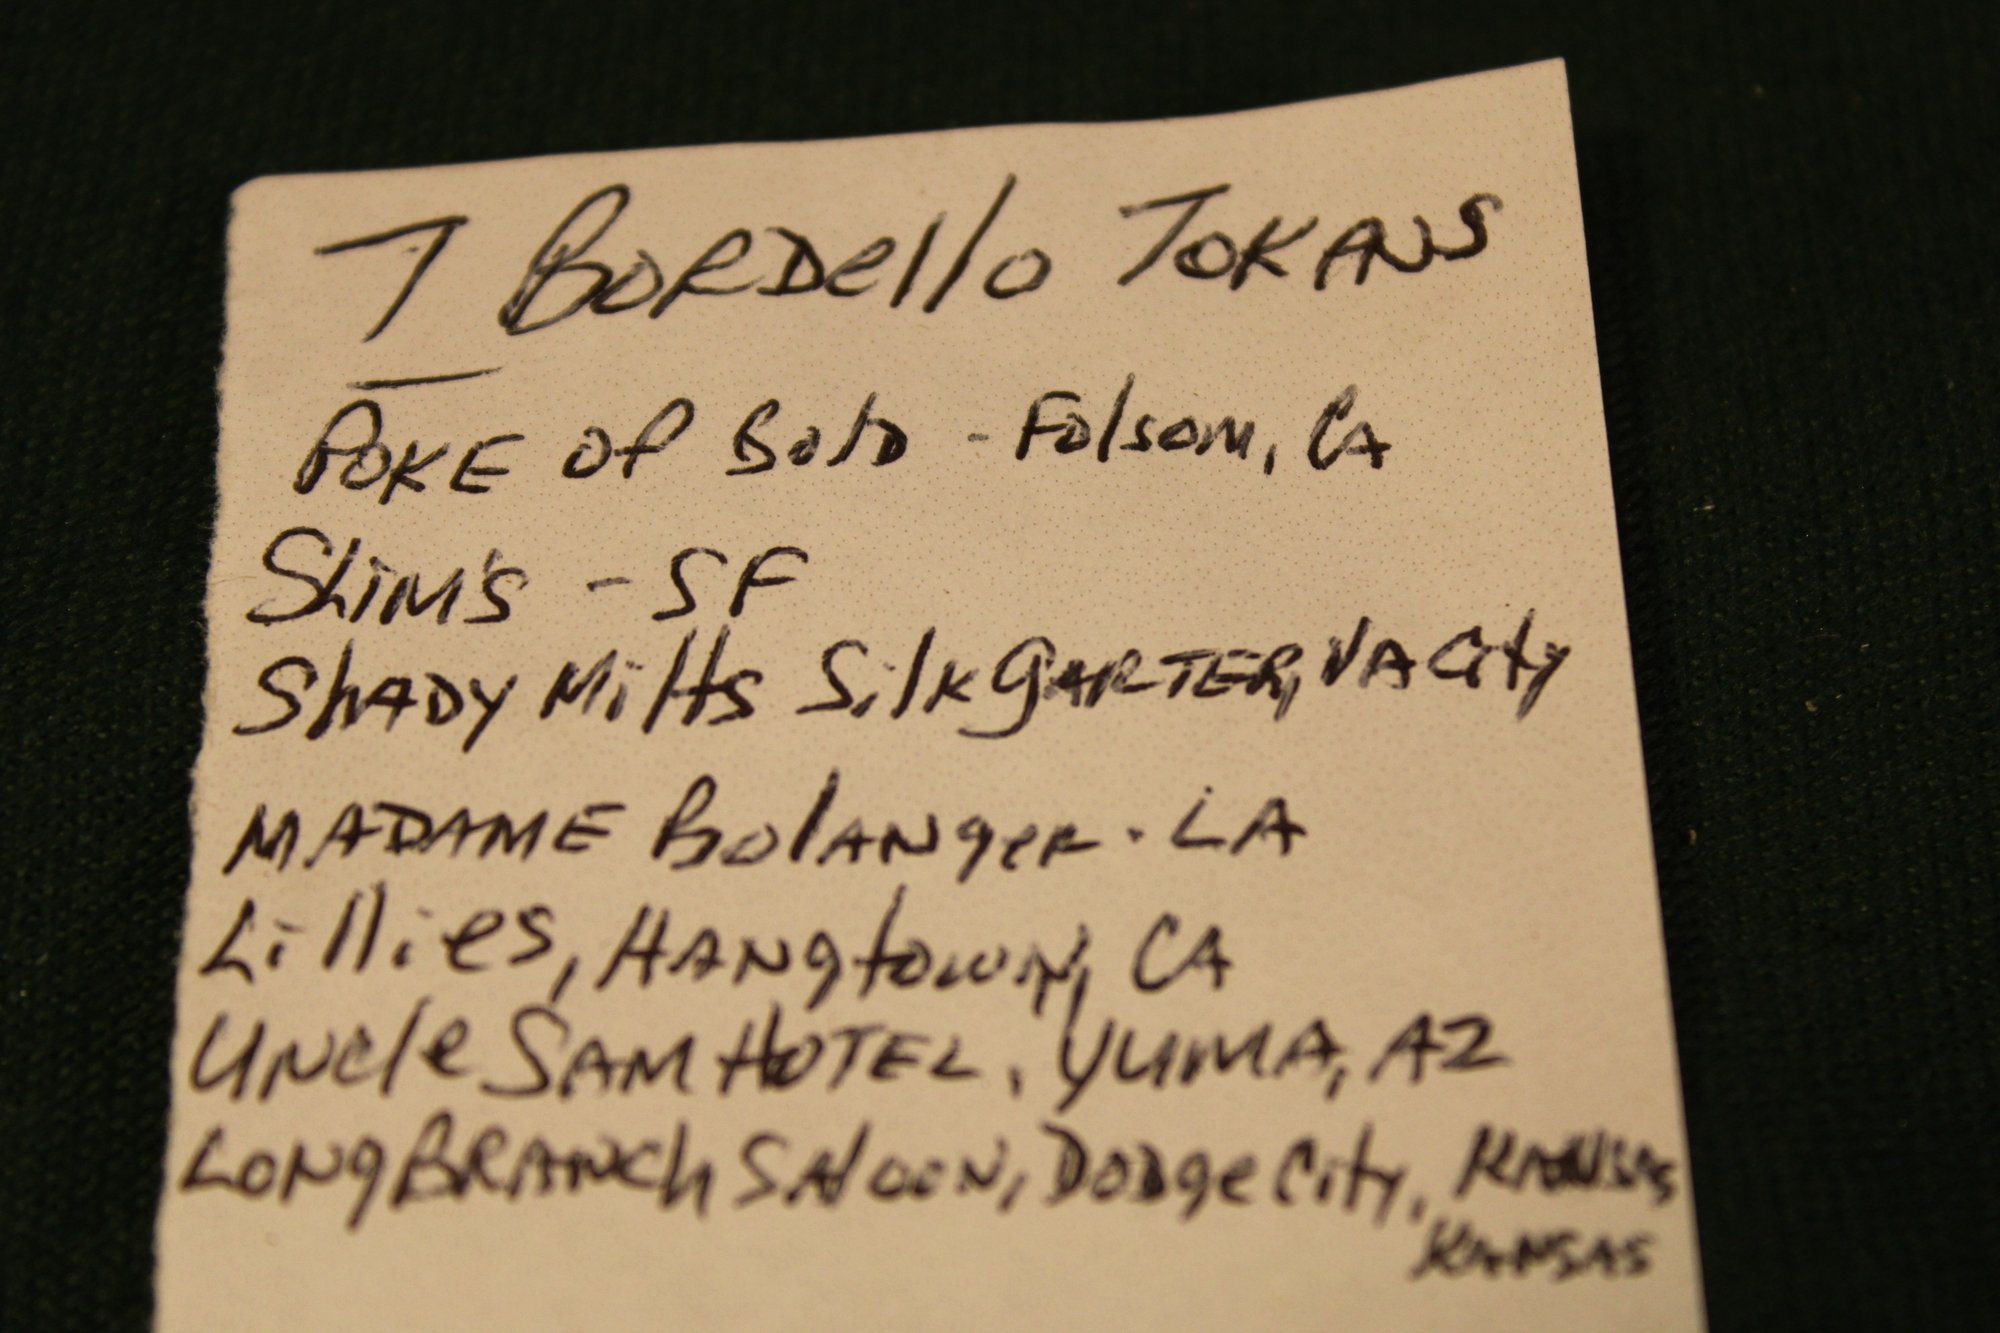 7 BORDello TOKANS
POKE OF GOLD - Folsom, CA
SLIM'S - SF
SHADY Mitts Silk GARTER, VA City
MADAME BolANger - LA
Lillies, HANgtown, CA
UNCle SAM HOTEL, YUMA, AZ
LONg BRANCh SALOON, DODge City, KANSAS
KANSAS